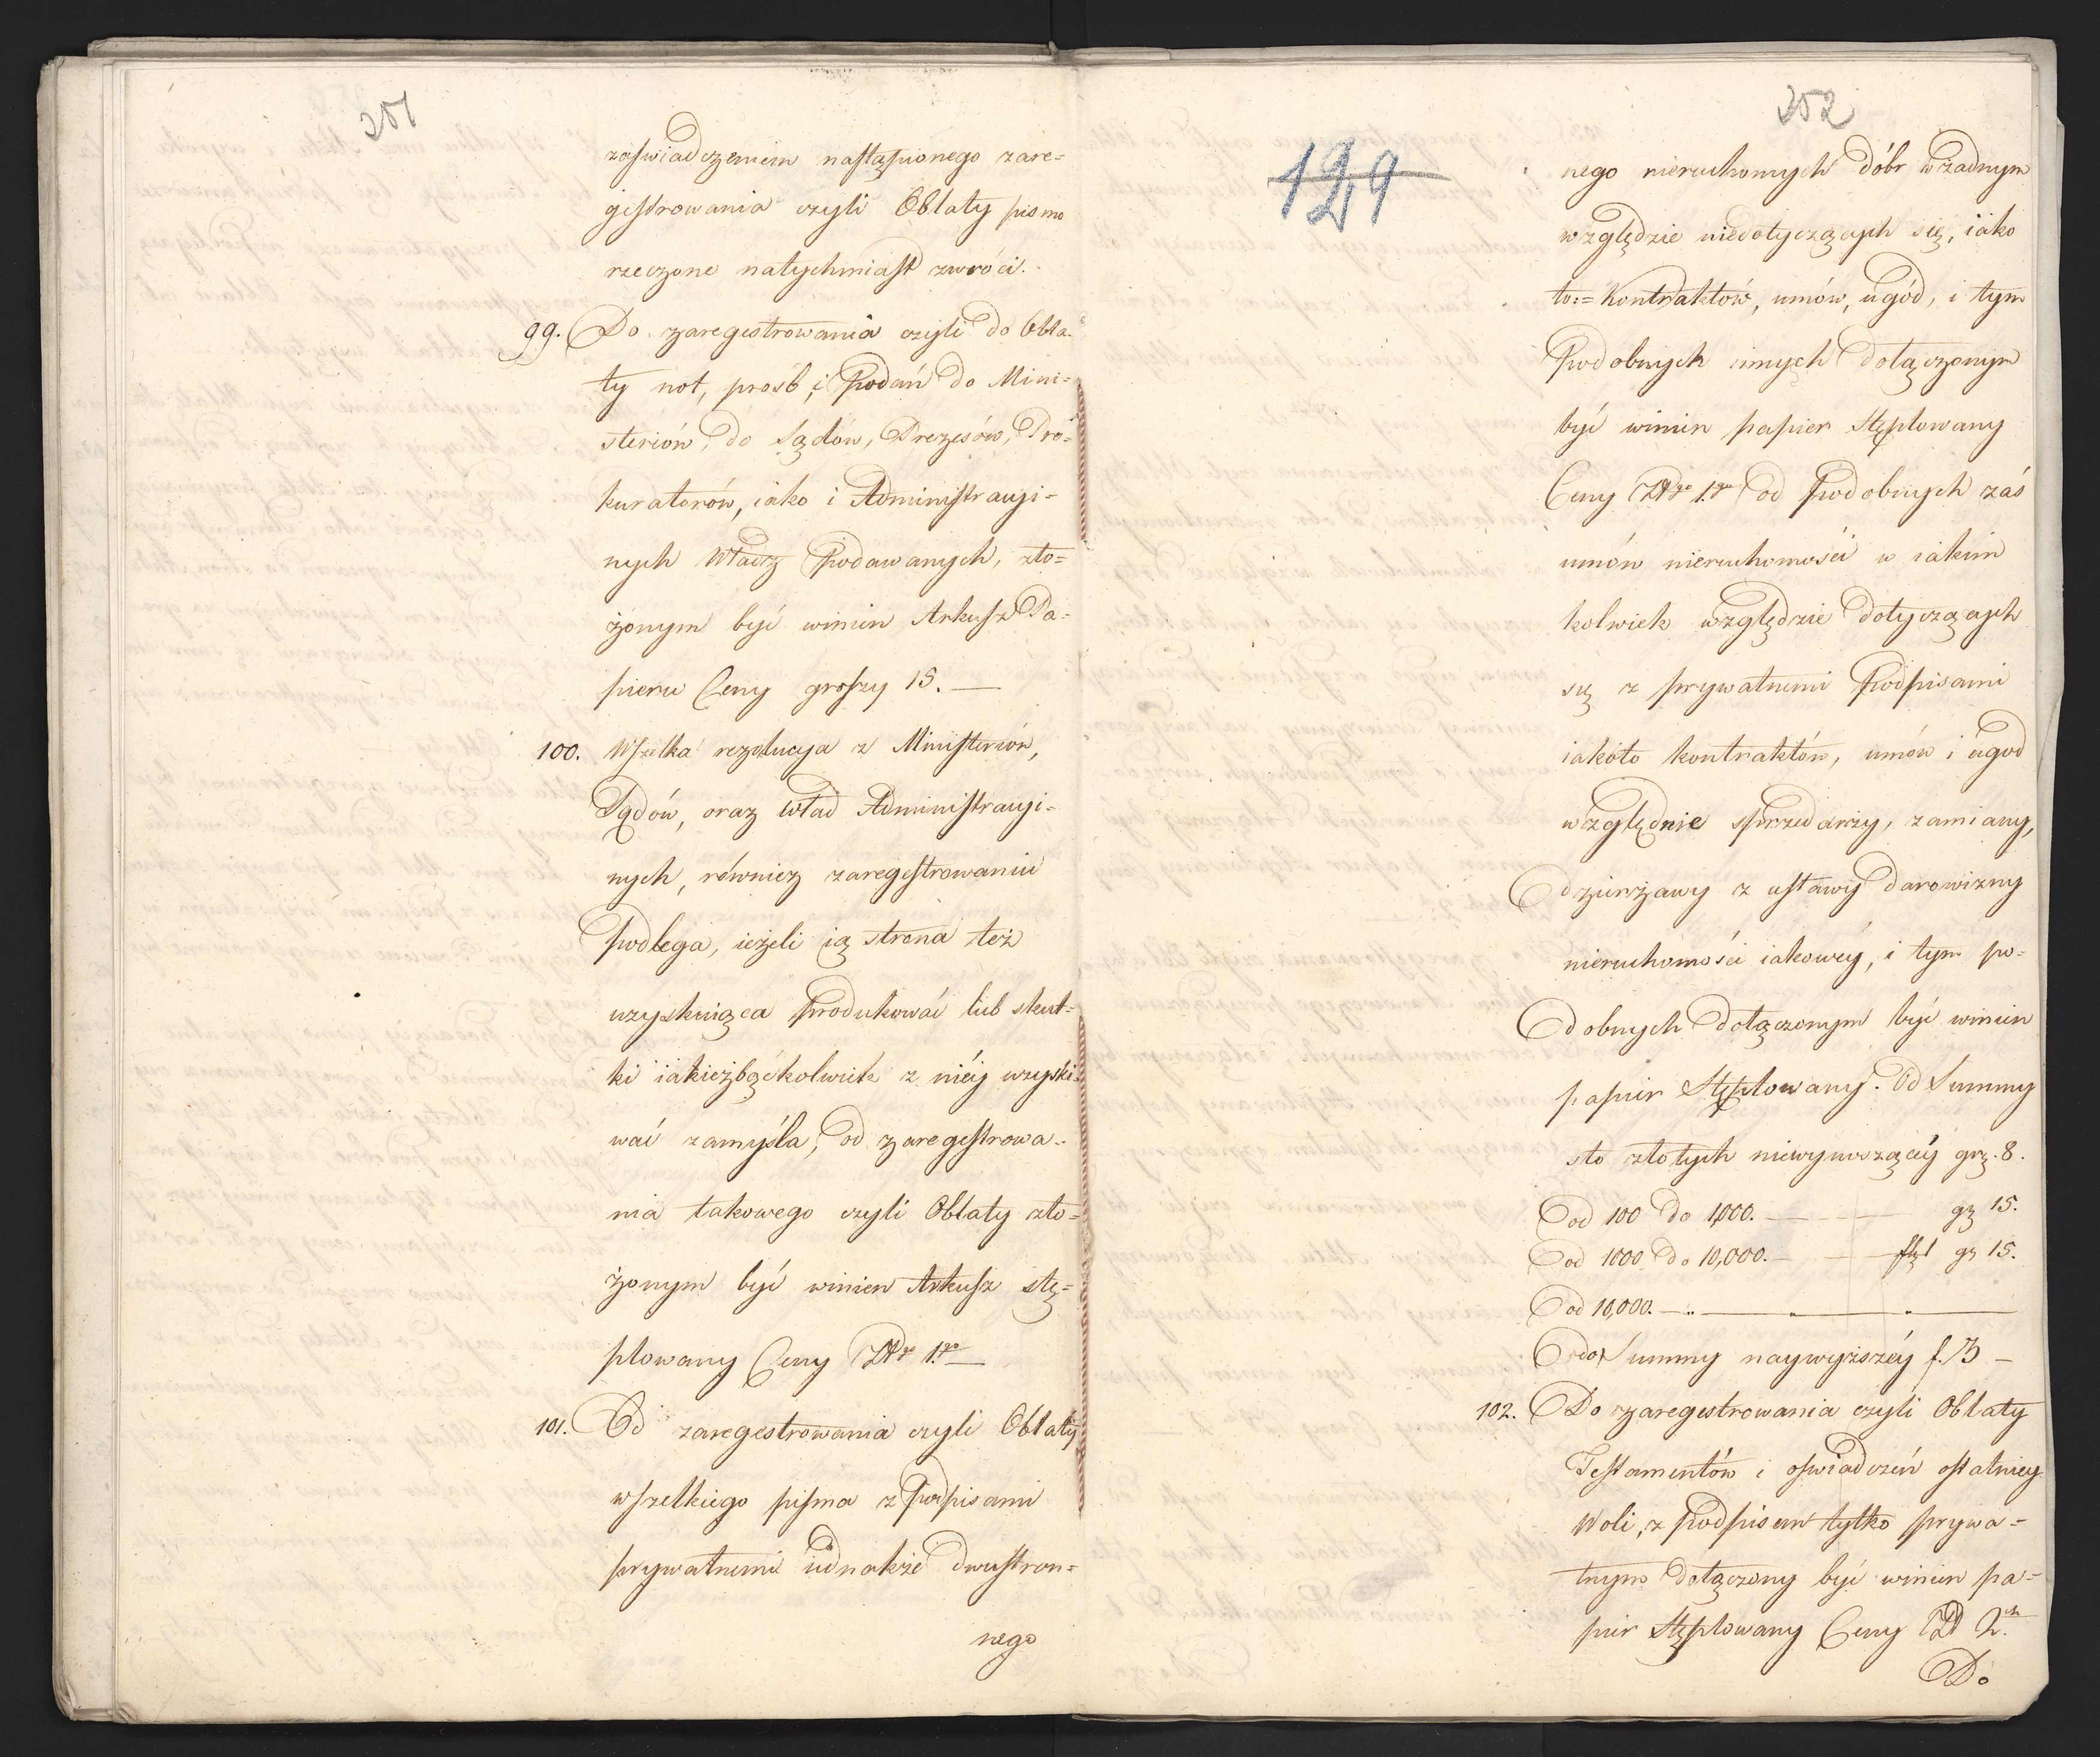 251
zaświadczeniem nastąpionego zare=
gestrowania czyli Oblaty pismo
rzeczone natychmiast zwróci.
99. Do zaregestrowania czyli do Obla-
ty not, prośb, i Podań do Mini=
steriów, do Sądów, Prezesów, Pro=
kuratorów, iako i Administracyi=
nych Władz Podawanych, zło=
żonym być winien Arkusz Pa=
pieru Ceny groszy 15. —
100. Wszelka rezolucya z Ministeriów,
Sądów, oraz Wład Administracyi=
nych, również zaregestrowaniu
Podlega, ieżeli ią strona też
uzyskuiąca Produkować lub skut=
ki iakieżbądźkolwiek z niéy uzyski=
wać zamyśla, od zaregestrowa=
nia takowego czyli Oblaty zło=
żonym być winien Arkusz stę=
plowany Ceny ZŁgo 1.go —
101. Od zaregestrowania czyli Oblaty
wszelkiego pisma z Podpisami
prywatnemi iednakże dwustron=
nego
252
129
nego nieruchomych dóbr w żadnym
względzie niedotyczących się, iako
to:= Kontraktów, umów, ugód, i tym
Podobnych innych dołączonym
być winien papier Stęplowany
Ceny ZŁgo 1.go od Podobnych zaś
umów nieruchomości w iakim
kolwiek względzie dotyczących
się z prywatnemi Podpisami
iakoto kontraktów, umów i ugod
względnie sprzedarzy, zamiany,
dzierżawy zastawy darowizny
nieruchomości iakowéy, i tym po=
dobnych dołączonym być winien
papier Stęplowany. Od Summy
sto złotych niewynoszącéy gr. 8.
od 100 do 1,000. — gr 15.
od 1000 do 10,000. — fl 1 gr 15.
od 10,000. — „ — „ — „ —
do Summy naywyższéy f. 3 —
102. Do zaregestrowania czyli Oblaty
Testamentów i oświadczeń ostatniey
Woli, z podpisem tylko prywa=
tnym dołączony być winien pa=
pier Stęplowany Ceny ZŁ 2.ch
Do